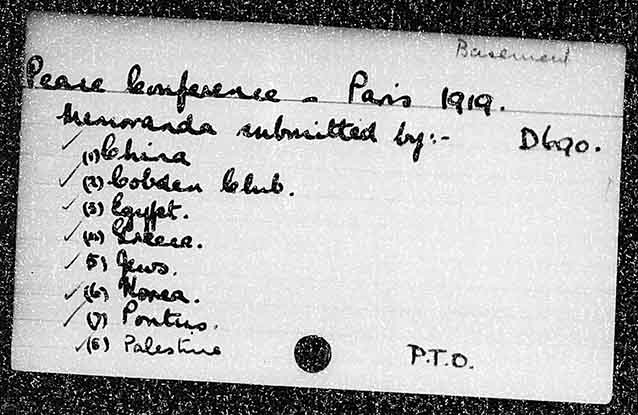 Basement
Peace Conference - Paris 1919.
Memoranda submitted by:- D690.
✓ (1) China
✓ (2) Cobden Club.
✓ (3) Egypt.
✓ (4) Greece.
✓ (5) Jews.
✓ (6) Korea.
✓ (7) Pontus.
✓ (8) Palestine
P.T.O.